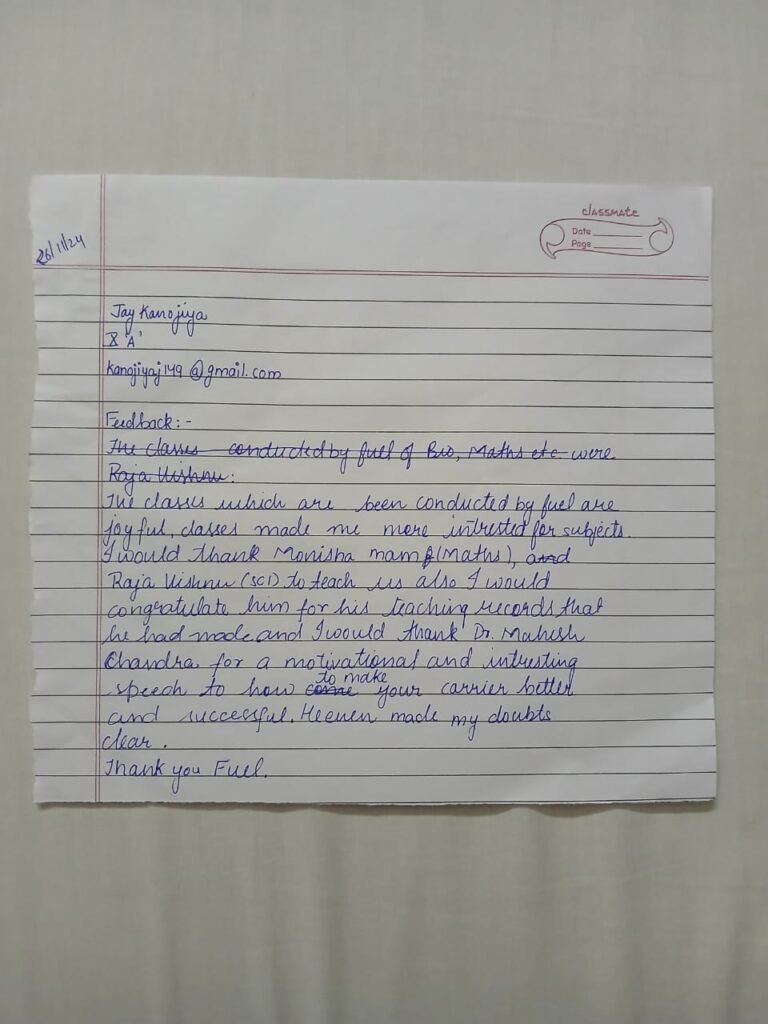 classmate
Date
Page
26/11/24
Jay Kanojiya
X 'A'
kanojiyaj149@gmail.com
Feedback:-
The classes conducted by fuel of Bio, Maths etc were
Raja Vishnu:
The classes which are been conducted by fuel are
joyful, classes made me more intrested for subjects.
I would thank Monisha mam (Maths), and
Raja Vishnu (SCI) to teach us also I would
congratulate him for his teaching records that
he had made and I would thank Dr. Mahesh
Chandra for a motivational and intresting
speech to how come to make your carrier better
and successful. He even made my doubts
clear.
Thank you Fuel.